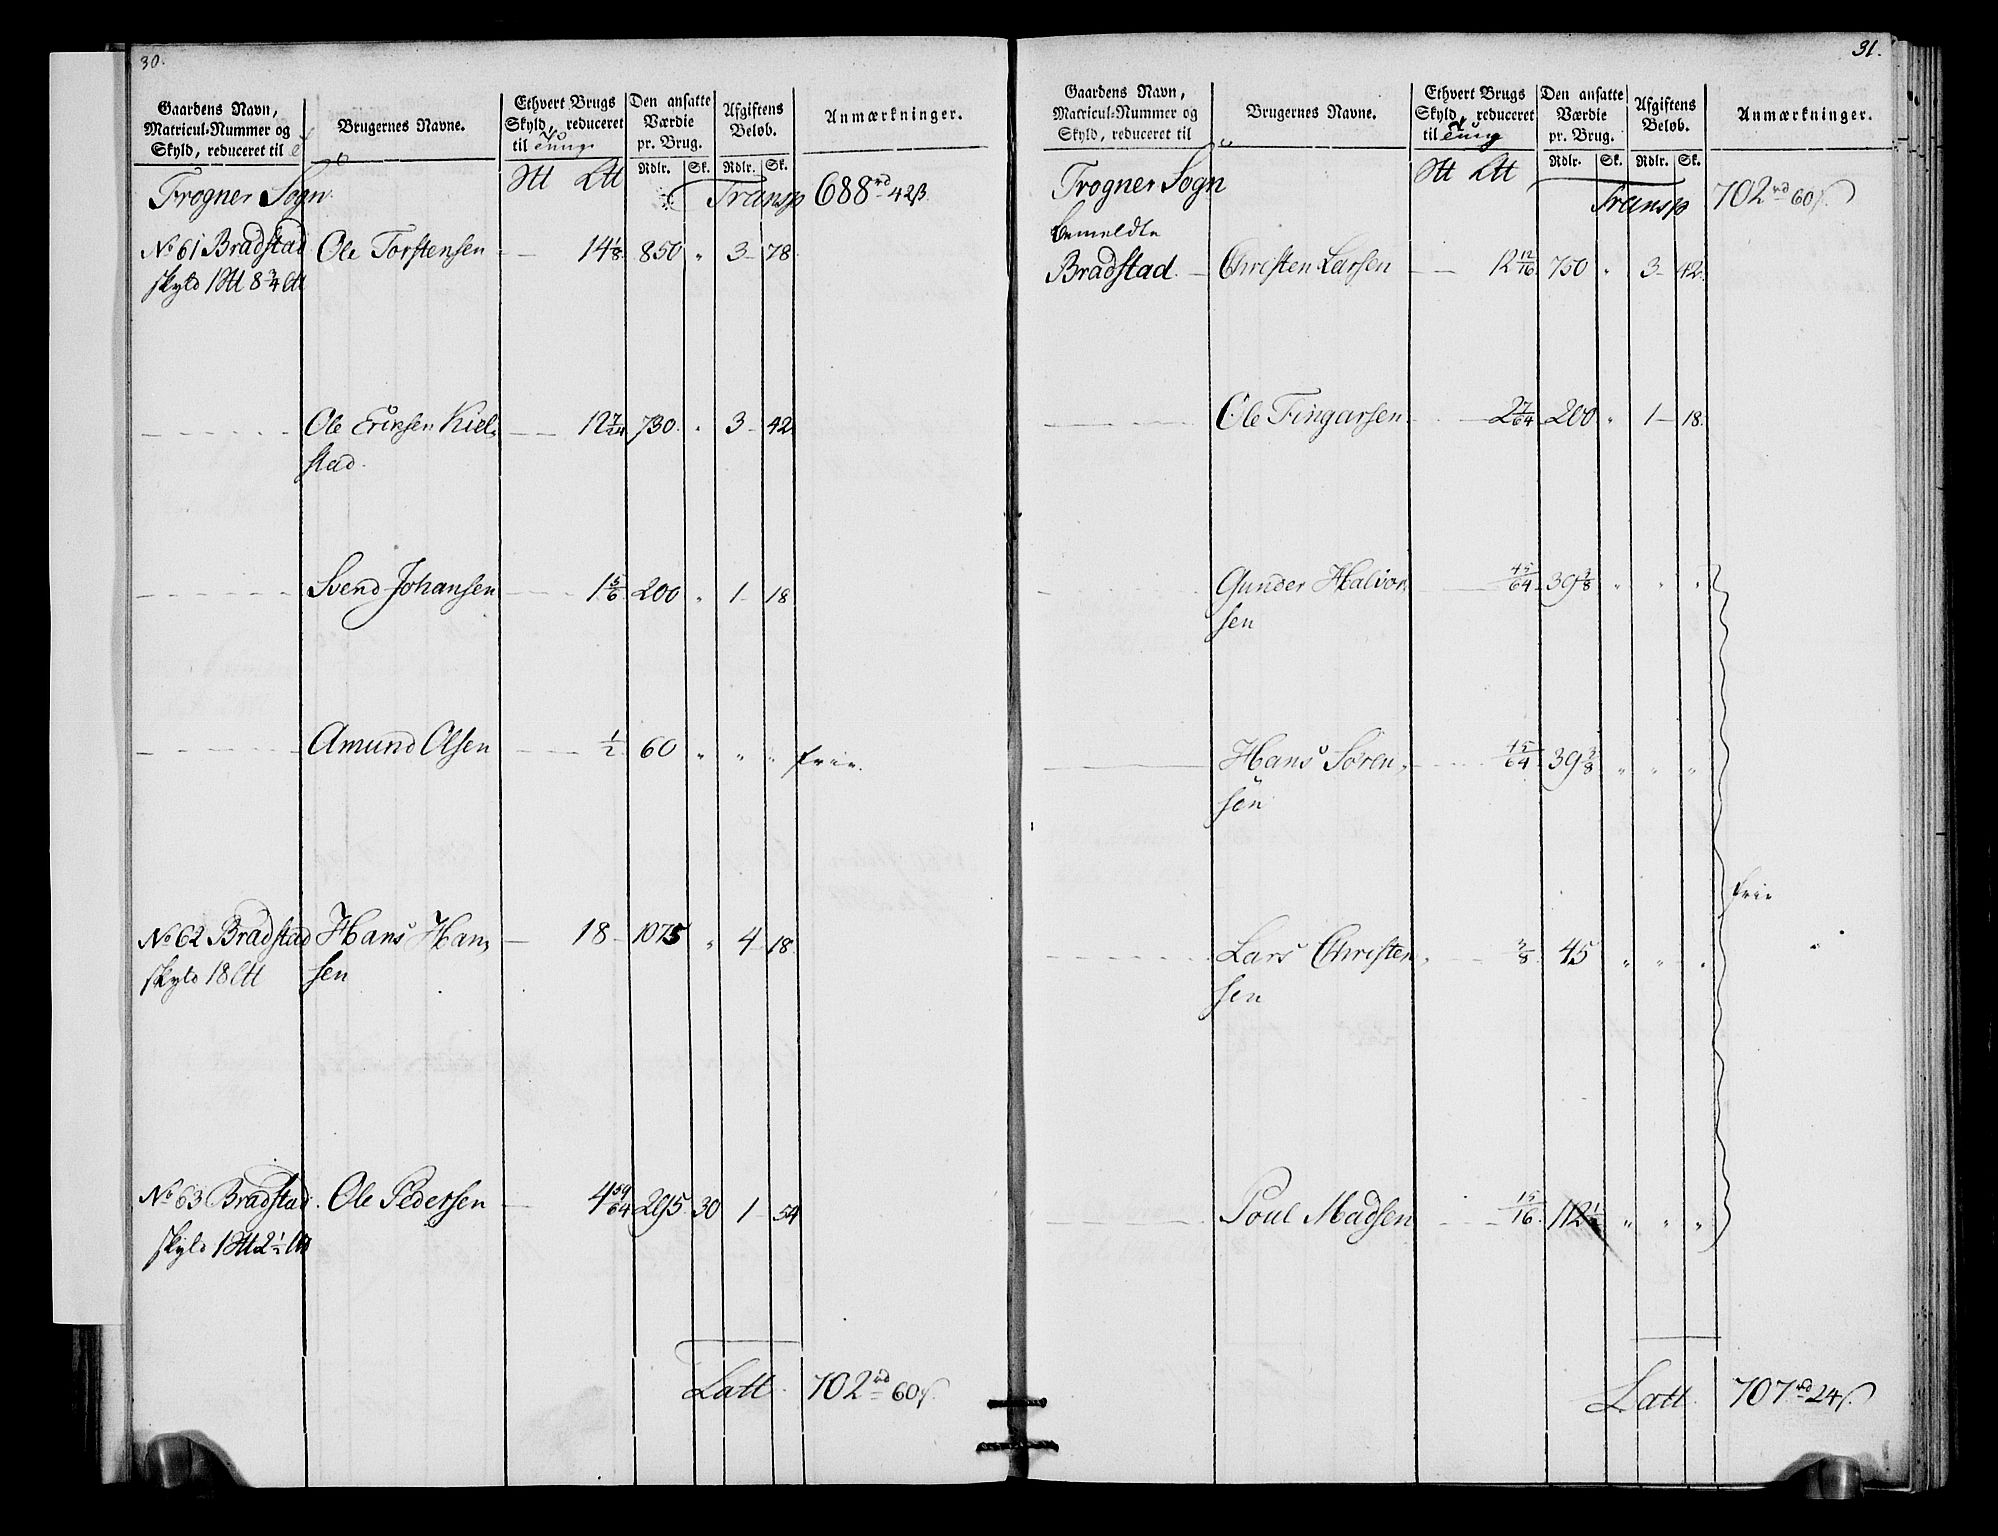 30.
Gaardens Navn, Matricul-Nummer og Skyld, reduceret til
Brugernes Navne.
Ethvert Brugs Skyld, reduceret til Tunge
Den ansatte Værdie pr. Brug.
Afgiftens Beløb.
Anmærkninger.
Rdlr. Sk. Rdlr. Sk.
Frogner Sogn Transp 688 rd 42 ß
No 61 Bradstad Ole Torstensen - 14 1/8 850 " 3 - 78
skyld 1 8 3/4
Ole Ericksen Kiel- 12 7/24 730 " 3 - 42
stad.
Svend Johansen 1 5/6 200 " 1 - 18
Amund Olsen 1/2 60 " " " frie.
No 62 Bradstad Hans Han- 18 - 1075 " 4 - 18
skyld 18 sen
No 63 Bradstad Ole Pedersen 4 59/64 295 30 1 - 54
skyld 1 2 1/2
Latt. 702 rd 60 ß.
31.
Gaardens Navn, Matricul-Nummer og Skyld, reduceret til
Brugernes Navne.
Ethvert Brugs Skyld, reduceret til Tung
Den ansatte Værdie pr. Brug.
Afgiftens Beløb.
Anmærkninger.
Rdlr. Sk. Rdlr. Sk.
Frogner Sogn Transp 702 rd 60 ß.
bemeldte
Bradstad. Christen Larsen 12 12/16 750 " 3 - 42
Ole Fingarsen 2 7/64 200 " 1 - 18
Gunder Halvor- 45/64 39 3/8 " " "
sen
Hans Sören- 45/64 39 3/8 " " "
sen
frie
Lars Christen- 3/8 45 " " "
sen
Poul Madsen 15/16 112 1/2 " " "
Latt. 707 rd 24 ß.